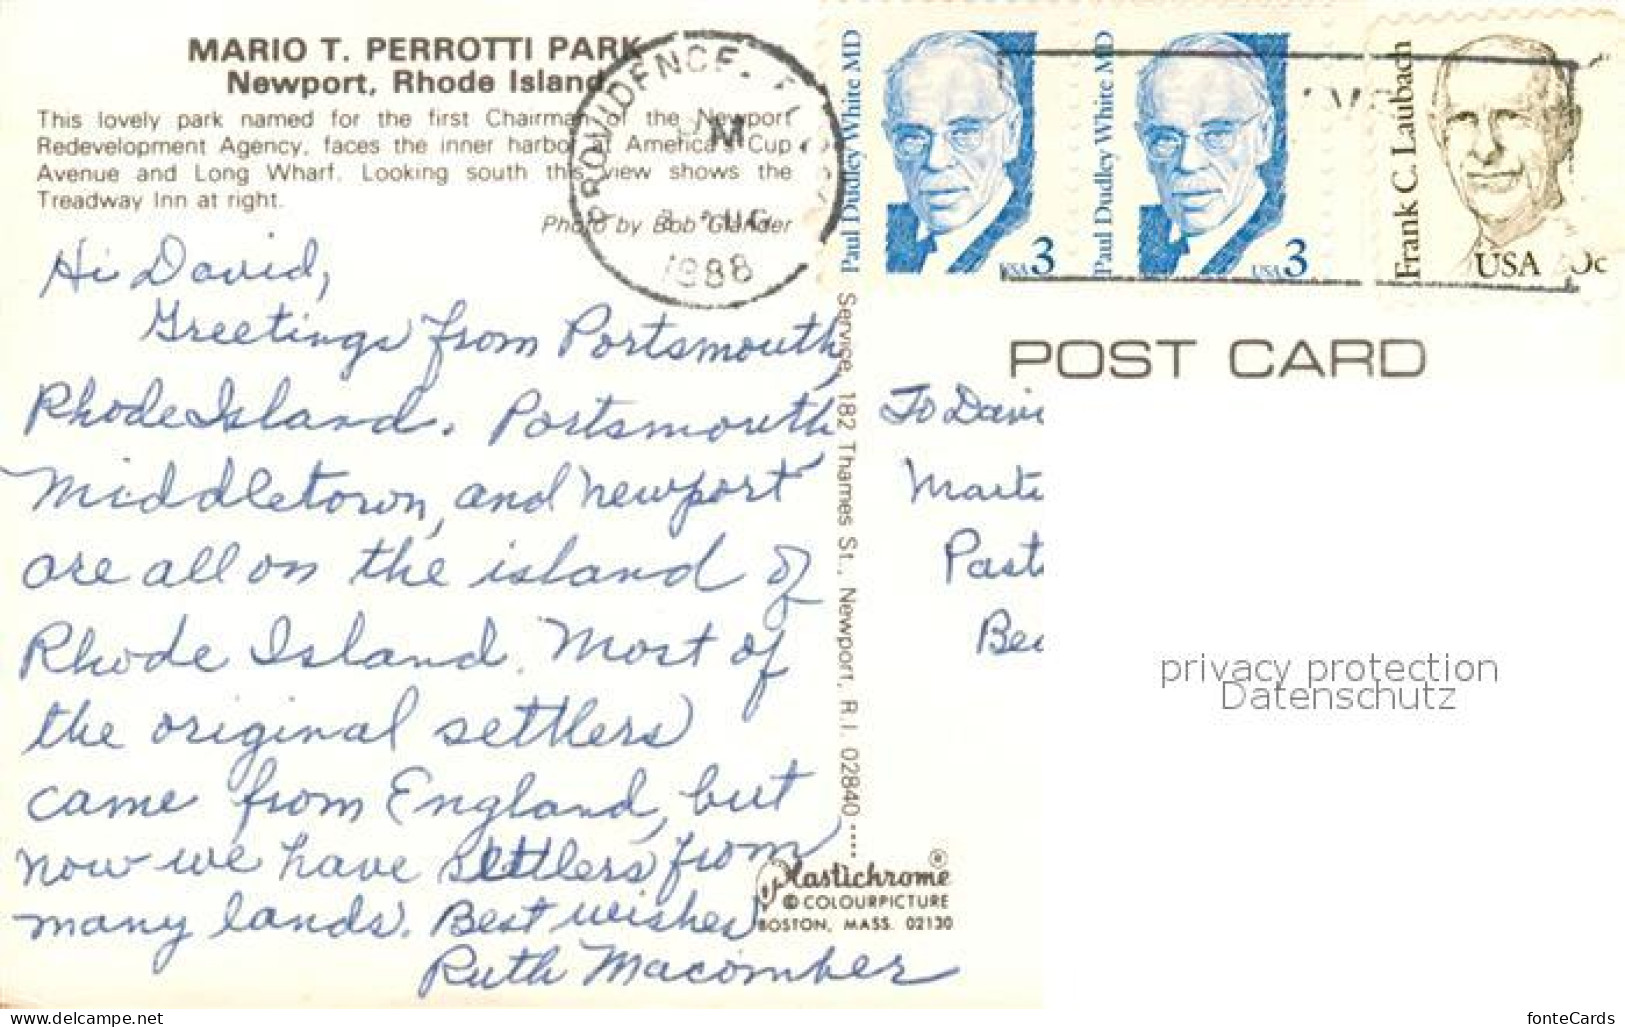 MARIO T. PERROTTI PARK
Newport, Rhode Island
This lovely park named for the first Chairman of the Newport
Redevelopment Agency, faces the inner harbor at America's Cup
Avenue and Long Wharf. Looking south this view shows the
Treadway Inn at right.
Photo by Bob
PROVIDENCE,
AUG
1988
Paul Dudley White MD
USA 3
Paul Dudley White MD
USA 3
Frank C. Laubach
USA
Hi David,
Greetings from Portsmouth,
Rhode Island. Portsmouth
Middletown, and Newport
are all on the island of
Rhode Island. Most of
the original settlers
came from England, but
now we have settlers from
many lands. Best wishes
Ruth Macomber
Service, 182 Thames St., Newport, R.I. 02840
Plastichrome ®
© COLOURPICTURE
BOSTON, MASS. 02130
POST CARD
To Davi
Marti
Past
Be
privacy protection
Datenschutz
www.delcampe.net
fonteCards